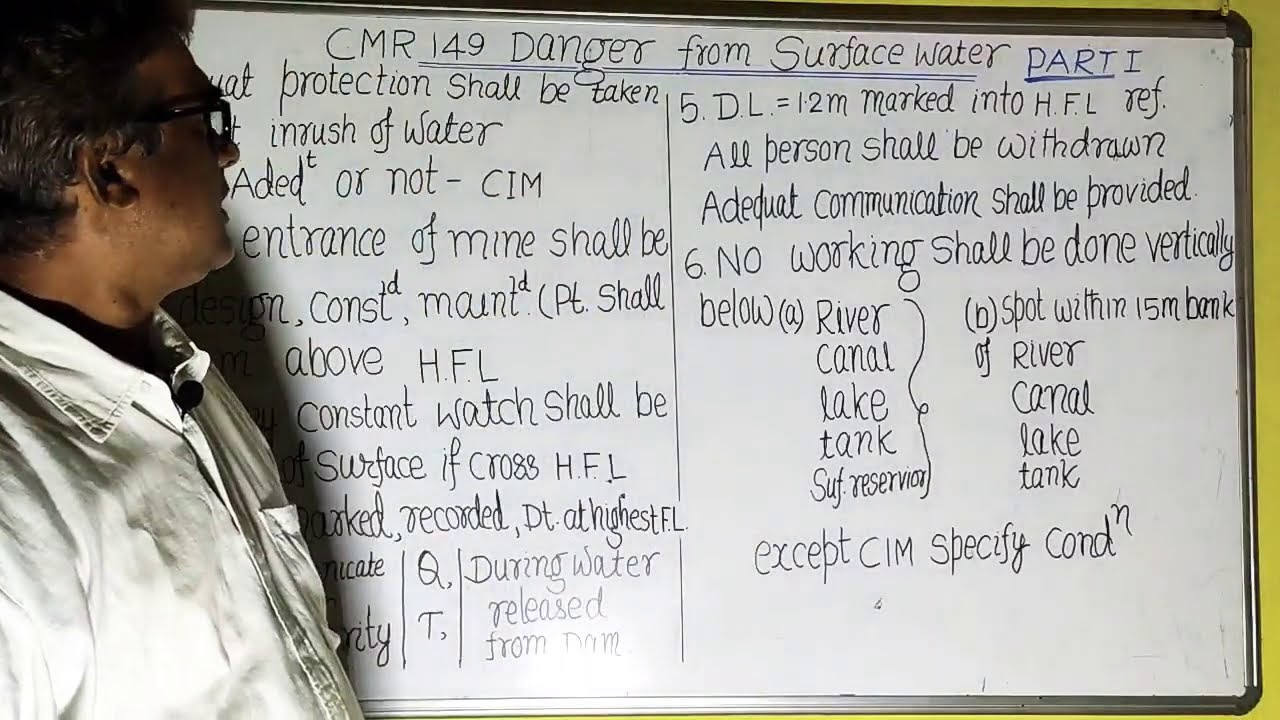 CMR 149 Danger from Surface water PART I
protection shall be taken
inrush of water
Aded^t or not - CIM
entrance of mine shall be
design, const^d, maint^d. (Pt. shall
m above H.F.L
constant watch shall be
of surface if cross H.F.L
recorded, Dt. at highest F.L.
Q, During water
T, released
from Dam
5. D.L. = 1.2m marked into H.F.L ref.
All person shall be withdrawn
Adequat communication shall be provided.
6. NO working shall be done vertically
below (a) River (b) spot within 15m bank
canal of River
lake canal
tank lake
Suf. reservior tank
except CIM specify cond^n